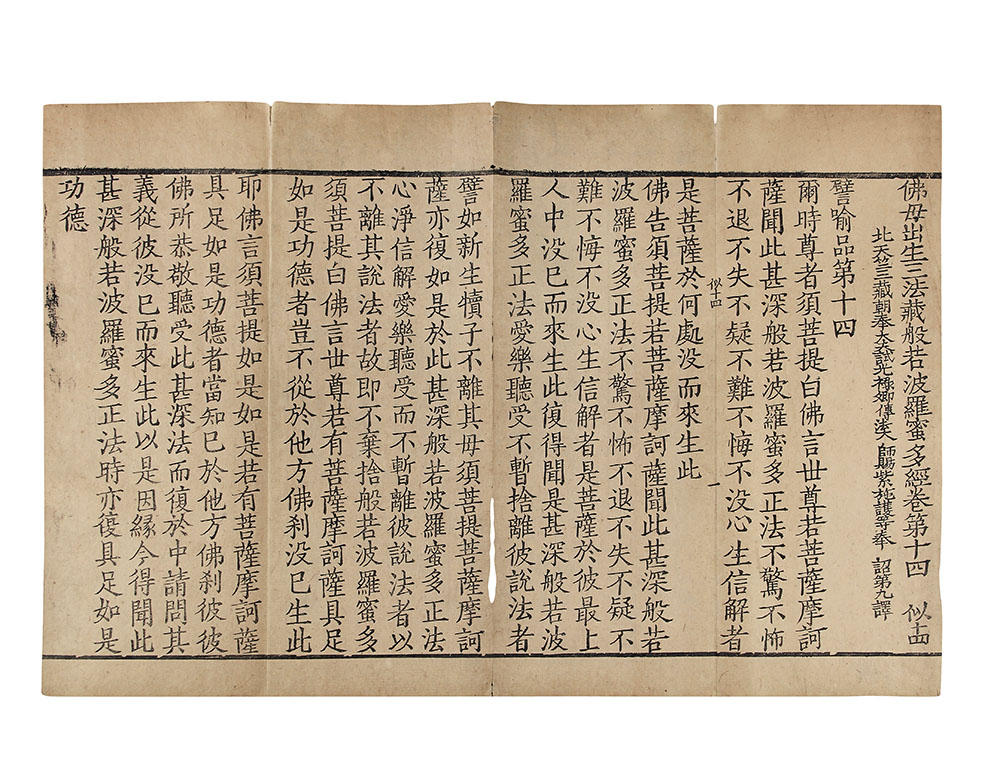 佛母出生三法藏般若波羅蜜多經卷第十四 似十四
北天竺三藏朝奉大夫試光祿卿傳法大師賜紫施護等奉 詔第九譯
譬喻品第十四
爾時尊者須菩提白佛言世尊若菩薩摩訶
薩聞此甚深般若波羅蜜多正法不驚不怖
不退不失不疑不難不悔不没心生信解者
似十四 一
是菩薩於何處没而來生此
佛告須菩提若菩薩摩訶薩聞此甚深般若
波羅蜜多正法不驚不怖不退不失不疑不
難不悔不没心生信解者是菩薩於彼最上
人中没已而來生此復得聞是甚深般若波
羅蜜多正法愛樂聽受不暫捨離彼說法者
譬如新生犢子不離其母須菩提菩薩摩訶
薩亦復如是於此甚深般若波羅蜜多正法
心淨信解愛樂聽受而不暫離彼說法者以
不離其說法者故即不棄捨般若波羅蜜多
須菩提白佛言世尊若有菩薩摩訶薩具足
如是功德者豈不從於他方佛刹没已生此
耶佛言須菩提如是如是若有菩薩摩訶薩
具足如是功德者當知已於他方佛刹彼彼
佛所恭敬聽受此甚深法而復於中請問其
義從彼没已而來生此以是因縁今得聞此
甚深般若波羅蜜多正法時亦復具足如是
功德